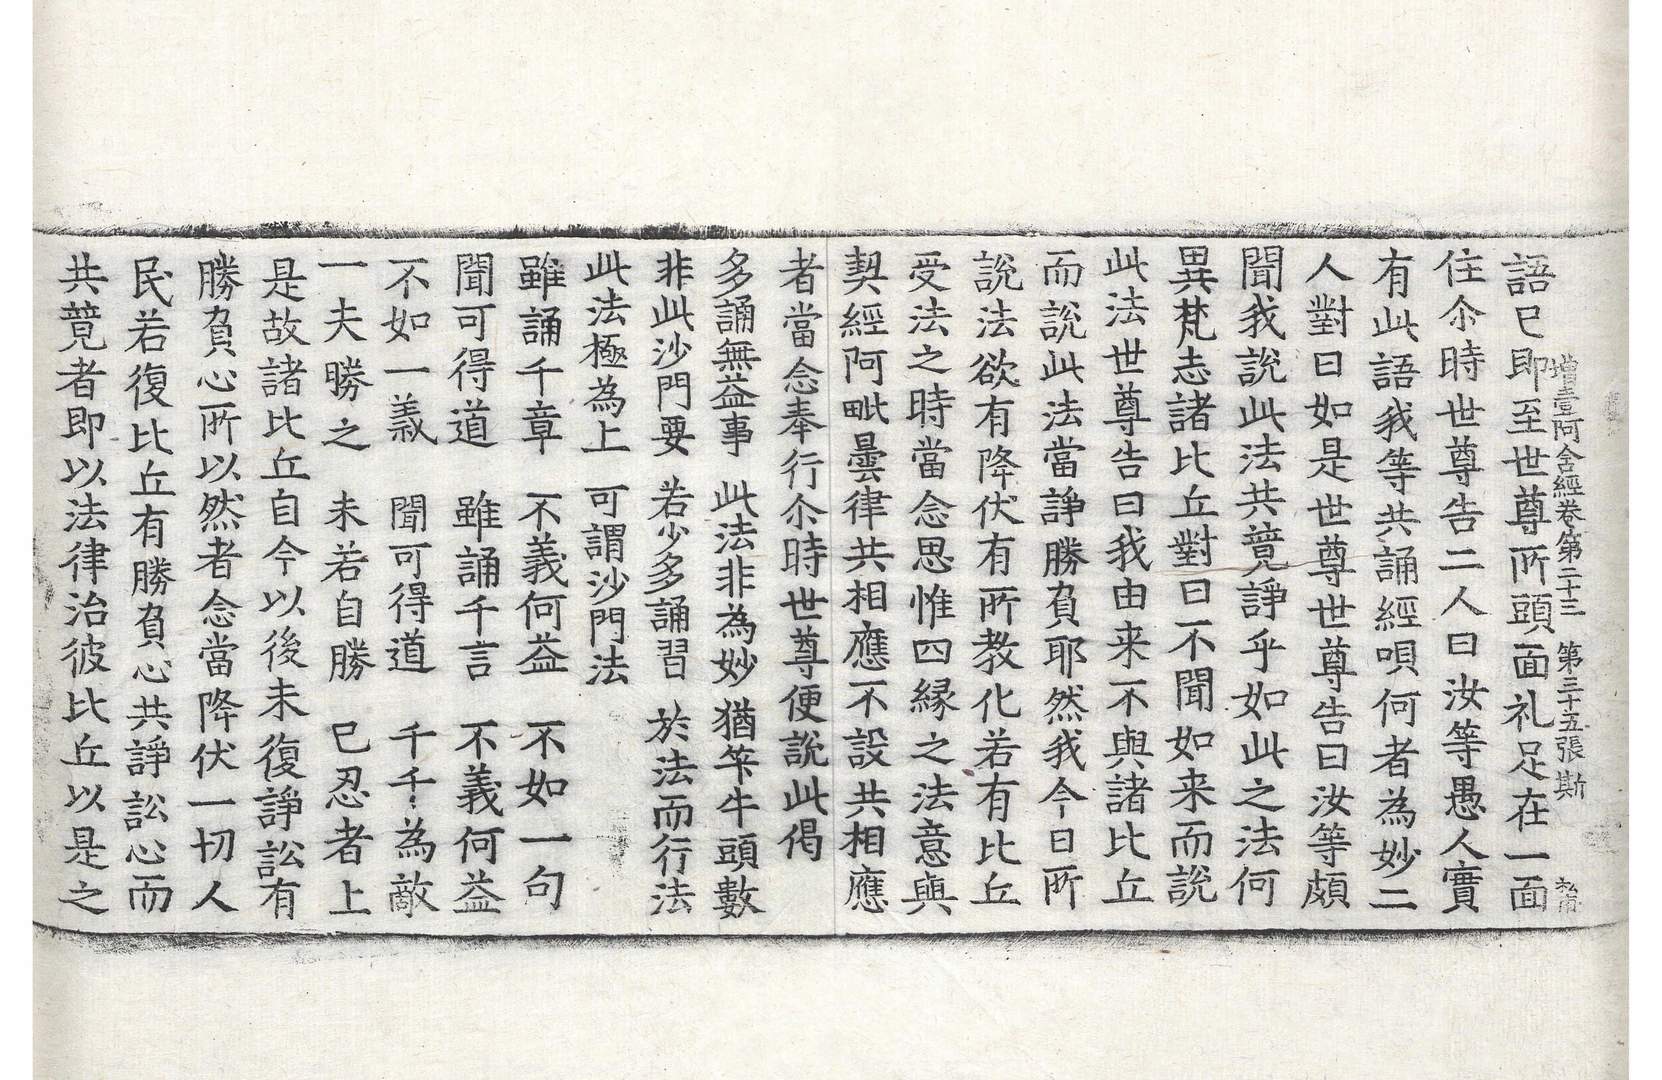 增壹阿含經卷第二十三 第三十五張 斯
語已即至世尊所頭面礼足在一面
住尒時世尊告二人曰汝等愚人實
有此語我等共誦經唄何者為妙二
人對曰如是世尊世尊告曰汝等頗
聞我說此法共競諍乎如此之法何
異梵志諸比丘對曰不聞如来而說
此法世尊告曰我由来不與諸比丘
而說此法當諍勝負耶然我今日所
說法欲有降伏有所教化若有比丘
受法之時當念思惟四縁之法意與
契經阿毗曇律共相應不設共相應
者當念奉行尒時世尊便說此偈
多誦無益事 此法非為妙 猶筭牛頭數
非此沙門要 若少多誦習 於法而行法
此法極為上 可謂沙門法
雖誦千章 不義何益 不如一句
聞可得道 雖誦千言 不義何益
不如一義 聞可得道 千千為敵
一夫勝之 未若自勝 已忍者上
是故諸比丘自今以後未復諍訟有
勝負心所以然者念當降伏一切人
民若復比丘有勝負心共諍訟心而
共競者即以法律治彼比丘以是之